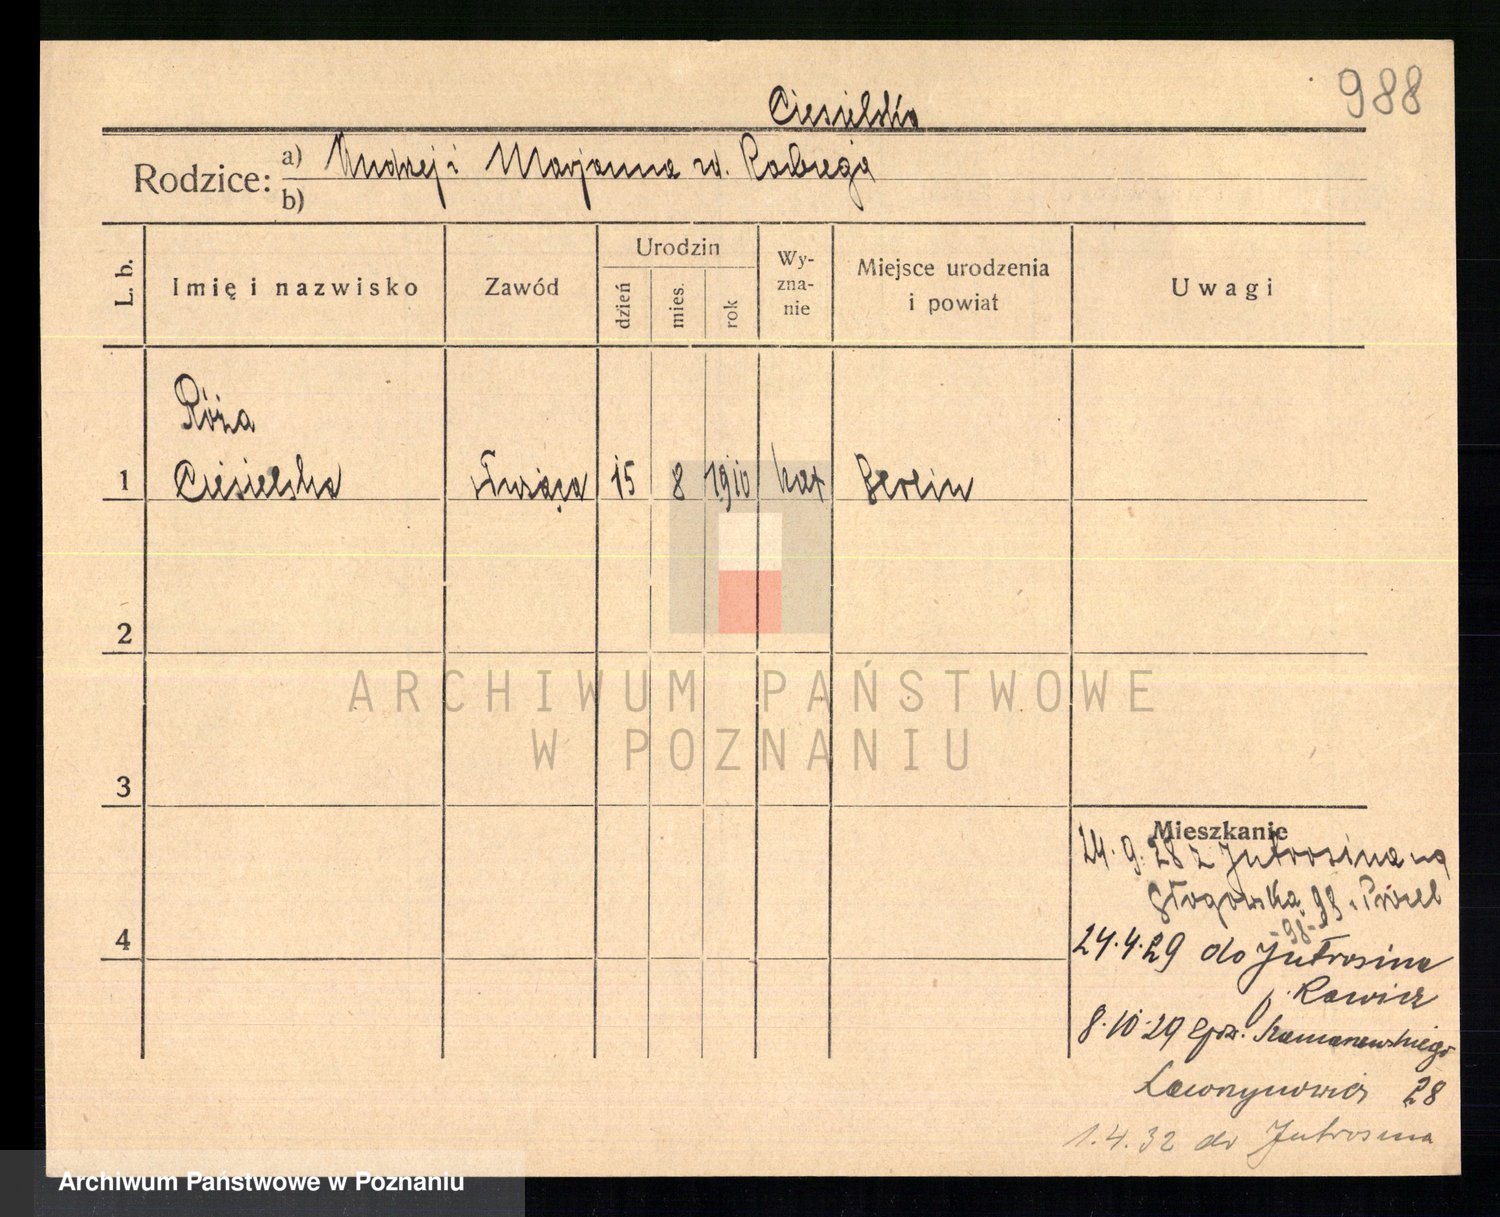 988
Ciesielska
Rodzice: a) Andrzej i Marjanna rd. Rabiega
b)
L. b.
Imię i nazwisko
Zawód
Urodzin
dzień
mies.
rok
Wy-
zna-
nie
Miejsce urodzenia
i powiat
Uwagi
Róża
1 Ciesielska służąca 15 8 1910 kat Berlin
2
ARCHIWUM PAŃSTWOWE
W POZNANIU
3
Mieszkanie
24. 9. 28 z Jutrosina na
Głogowska 98
-98-
4
24.4.29 do Jutrosina
p. Rawicz
8.10.29
28
1.4.32 do Jutrosina
Archiwum Państwowe w Poznaniu